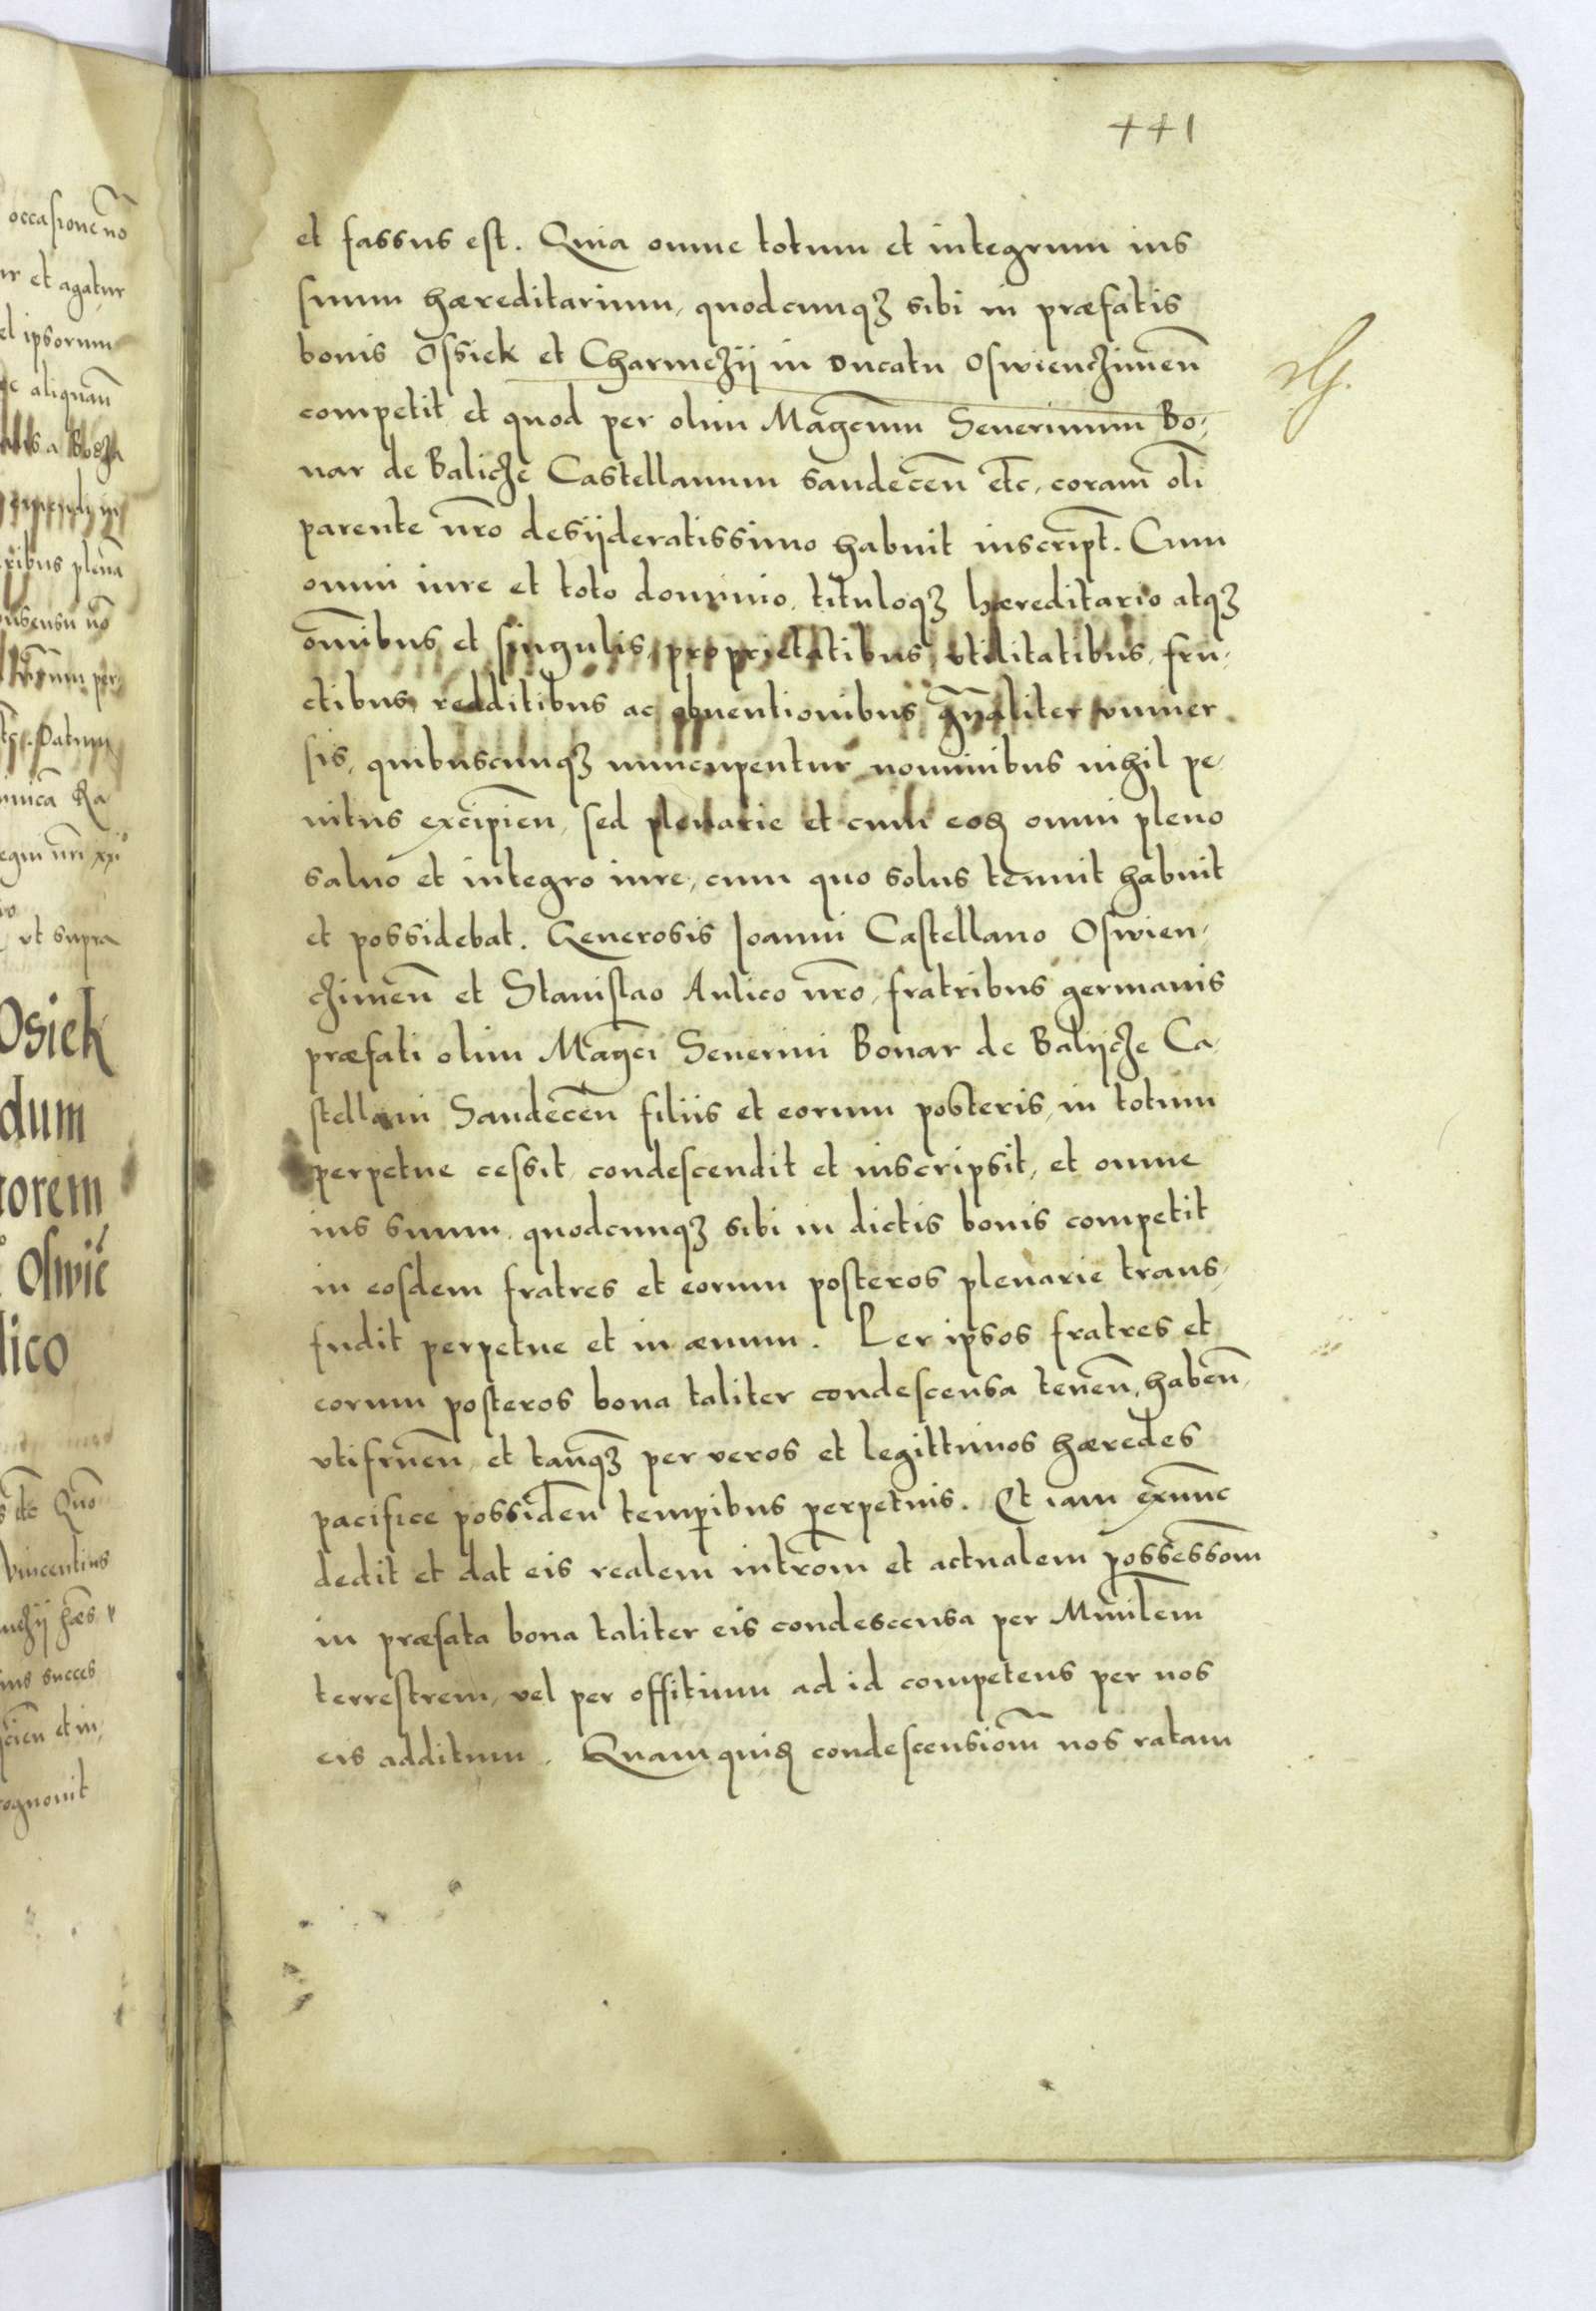 441
et fassus est. Quia omne totum et integrum ius
suum hæreditarium, quodcunqꝫ sibi in præfatis
bonis Ossiek et Charmeẓij in Ducatu Oswiencẓimen̄
competit et quod per olim Magcum̄ Seuerinum Bo-
nar de Balicẓe Castellanum Sandecen̄ etc̄, coram oli̅
parente nr̄o desijderatissimo habuit inscript̄. Cum
omni iure et toto dominio, tituloqꝫ hæreditario atqꝫ
om̄ibus et singulis proprietatibus, vtilitatibus, fru-
ctibus, redditibus ac obuentionibus gn̄aliter vniuer
sis, quibuscunqꝫ nuncupentur nominibus nihil pe-
nitus excipien̄, sed plenarie et cum eoꝗ omni pleno
saluo et integro iure, cum quo solus tenuit habuit
et possidebat. Generosis Ioanni Castellano Oswien-
cẓimen̄ et Stanislao Aulico nr̄o, fratribus germanis
præfati olim Magc̄i Seuerini Bonar de Balijcẓe Ca-
stellani Sandecen̄ filiis et eorum posteris, in totum
perpetue cessit condescendit et inscripsit, et omne
ius suum quodcunqꝫ sibi in dictis bonis competit
in eosdem fratres et eorum posteros plenarie trans-
fudit perpetue et in æuum. Per ipsos fratres et
eorum posteros bona taliter condescensa tenen̄, haben̄,
vtifruen̄, et tanqꝫ per veros et legittimos hæredes
pacifice possiden̄ temp̄ibus perpetuis. Et iam exnunc
dedit et dat eis realem intrōm et actualem possessōm
in præfata bona taliter eis condescensa per Mini̅lem
terrestrem, vel per offitium ad id competens per nos
eis additum. Quamquiꝗ condescensiōm nos ratam